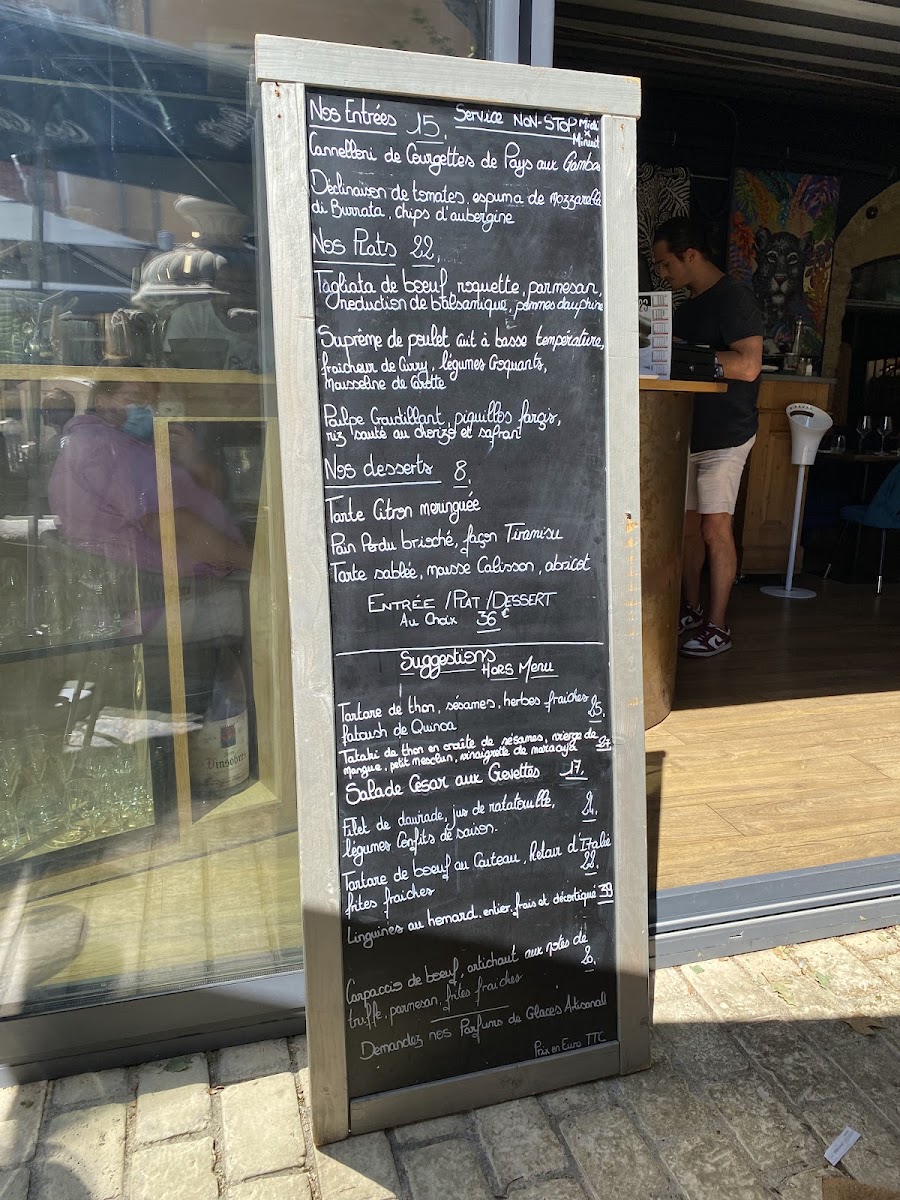 Nos Entrées 15. Service NON-STOP Midi x Minuit
Cannelloni de Courgettes de Pays aux Gambas
Déclinaison de tomates, espuma de mozzarella
di Burrata, chips d'aubergine
Nos Plats 22.
Tagliata de boeuf, roquette, parmesan,
reduction de balsamique, pommes dauphine
Suprême de poulet cuit à basse température,
fraicheur de Curry, légumes Croquants,
mousseline de Carotte
Poulpe Croustillant, piquillos farçis,
riz sauté au chorizo et safran
Nos desserts 8.
Tarte Citron meringuée
Pain Perdu brioché, façon Tiramisu
Tarte sablée, mousse Calisson, abricot
ENTRÉE / PLAT / DESSERT
Au Choix 36€
Suggestions HORS MENU
Tartare de thon, sésames, herbes fraiches 25.
fatoush de Quinoa
Tataki de thon en croûte de sésames, vierge de 27.
mangue, petit mesclun, vinaigrette de maracuja
Salade César aux Crevettes 17.
Filet de daurade, jus de ratatouille,
légumes Confits de saison.
Tartare de boeuf au Couteau, Retour d'Italie 22.
frites fraiches
Linguines au homard. entier. frais et décortiqué 39
Carpaccio de boeuf, artichaut aux notes de
truffe, parmesan, frites fraiches
Demandez nos Parfums de Glaces Artisanal
Prix en Euro TTC
Vinsobres